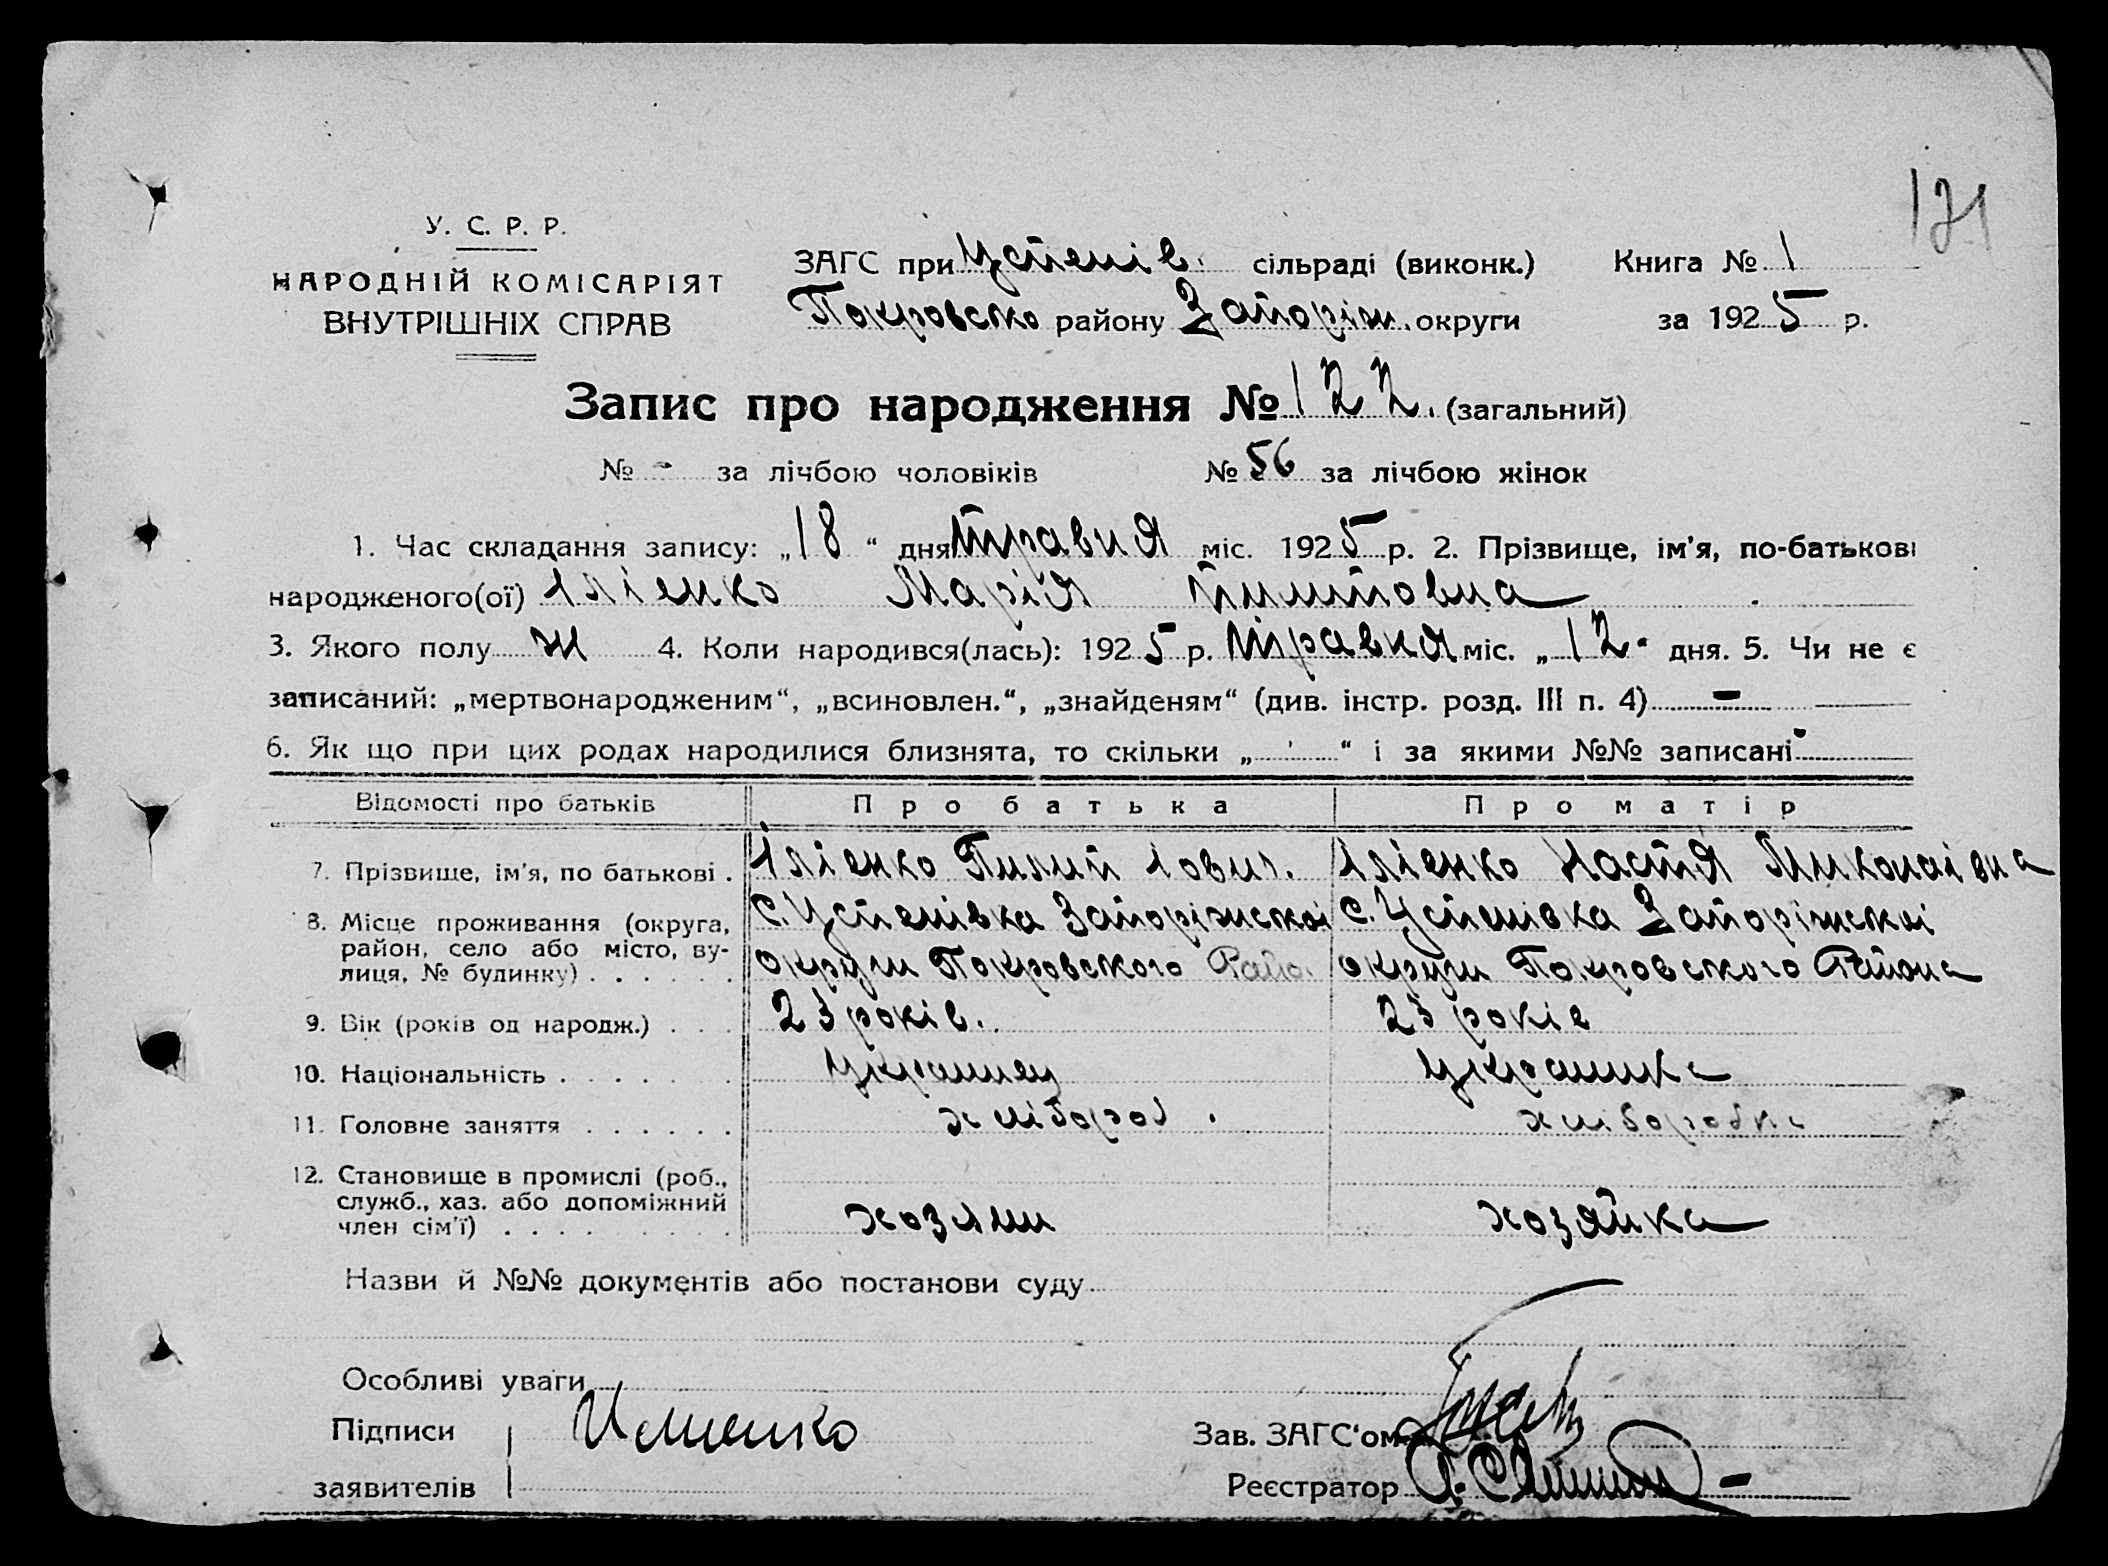 121
У. С. Р. Р.
НАРОДНІЙ КОМІСАРІЯТ
ВНУТРІШНІХ СПРАВ
ЗАГС при Успенів. сільраді (виконк.) Книга № 1
Покровсько району Запоріж. округи за 1925 р.
Запис про народження № 122. (загальний)
№ - за лічбою чоловіків № 56 за лічбою жінок
1. Час складання запису: „18“ дня травня міс. 1925 р. 2. Прізвище, ім'я, по-батькові
народженого(ої) Іліенко Марія Пилиповна
3. Якого полу ж 4. Коли народився(лась): 1925 р. травня міс. „12“ дня. 5. Чи не є
записаний: „мертвонародженим“, „всиновлен.“, „знайденям“ (див. інстр. розд. III п. 4) -
6. Як що при цих родах народилися близнята, то скільки „ “ і за якими №№ записані
Відомості про батьків Про батька Про матір
7. Прізвище, ім'я, по батькові . Іліенко Пилип Іович. Іліенко Настя Миколаівна
8. Місце проживання (округа, с. Успенівка Запоріжскоі с. Успенівка Запоріжскоі
район, село або місто, ву- округи Покровського Райо. округи Покровського Района
лиця, № будинку) . . . . . .
9. Вік (років од народж.) . . . 23 років. 23 років
10. Національність . . . . . . украинец украинка
11. Головне заняття . . . . . . хлібороб. хлібо­робка
12. Становище в промислі (роб.,
служб., хаз. або допоміжний хозяин хозяйка
член сім'ї) . . . . . . . .
Назви й №№ документів або постанови суду
Особливі уваги
Підписи Илиенко Зав. ЗАГС'ом
заявителів Реєстратор